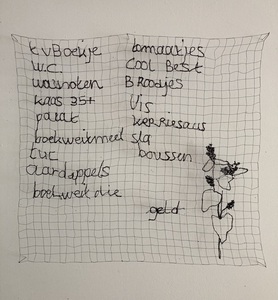 t.v Boekje
W.C.
wasnoten
kaas 35+
patat
boekweitmeel
tuc
aardappels
boekweit die
tomaatjes
Cool Best
Broodjes
Vis
kerriesaus
sla
boussen
geld